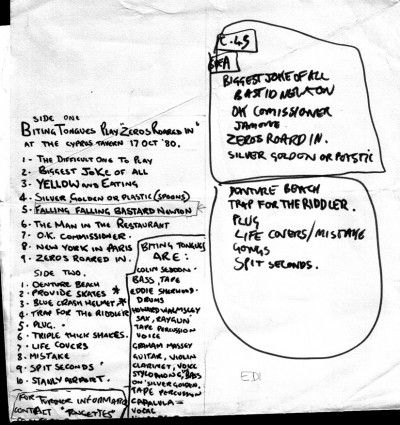 SIDE ONE
BITING TONGUES PLAY "ZEROS ROARED IN"
AT THE CYPRUS TAVERN 17 OCT '80.
1 - THE DIFFICULT ONE TO PLAY
2 - BIGGEST JOKE OF ALL
3 - YELLOW AND EATING
4 - SILVER GOLDEN OR PLASTIC (SPOONS)
5 - FALLING FALLING BASTARD NEWTON
6 - THE MAN IN THE RESTAURANT
7 - O.K. COMMISSIONER.
8 - NEW YORK IN PARIS
9 - ZEROS ROARED IN.
SIDE TWO.
1 - DENTURE BEACH
2 - PROVIDE SKATES *
3 - BLUE CRASH HELMET *
4 - TRAP FOR THE RIDDLER
5 - PLUG.
6 - TRIPLE THICK SHAKES.
7 - LIFE COVERS
8 - MISTAKE
9 - SPIT SECONDS
10 - AIRPORT.
FOR FURTHER INFORMATION
CONTACT "TONGETTES"
BITING TONGUES
ARE :
COLIN SEDDON -
BASS, TAPE
EDDIE SHERWOOD -
DRUMS
HOWARD WALMSLEY
SAX, RAYGUN
TAPE PERCUSSION
VOICE
GRAHAM MASSEY
GUITAR, VIOLIN
CLARINET, VOICE
STYLOPHONE, BASS
ON 'SILVER GOLDEN.
TAPE PERCUSSION
CAPALULA -
VOCAL
C.45
BIGGEST JOKE OF ALL
BASTID NEWTON
OK COMISSIONER
ZEROS ROARD IN.
SILVER GOLDON OR PLASTIC
DONTURE BEACH
TRAP FOR THE RIDDLER.
PLUG
LIFE COVERS/MISTAKE
GONGS
SPIT SECONDS.
EDI